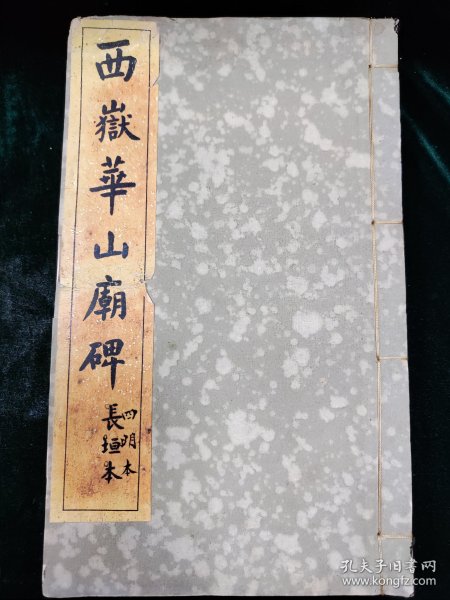 西嶽華山廟碑
四明本
長垣本
孔夫子旧书网
www.kongfz.com